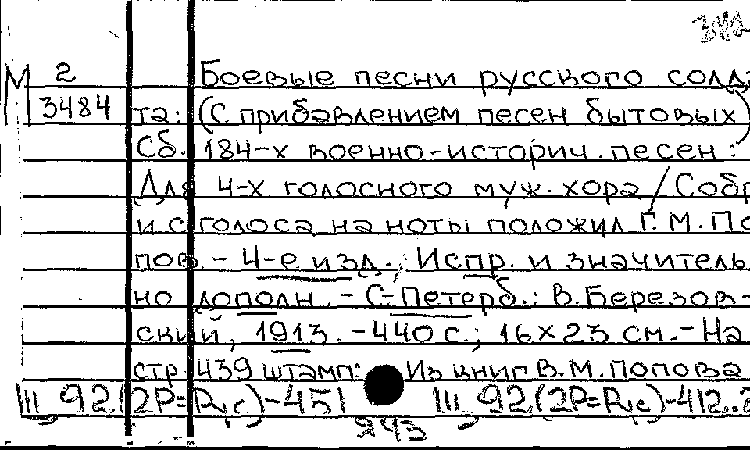 М 2 Боевые песни русского солда
3484 та: (С прибавлением песен бытовых)
Сб. 184-х военно-историч. песен:
Для 4-х голосного муж. хора / Собр
и с голоса на ноты положил Г. М. По
пов. - 4-е изд., Испр. и значитель
но дополн. - С-Петерб.: В. Березов-
ский, 1913. - 440 с.; 16×23 см. - На
стр. 439 штамп: Из книг В. М. Попова
Ш 92(2Р=Рус)-451 Ш 92(2Р=Рус)-412..2
293